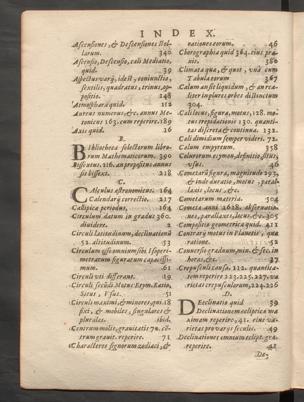 INDEX.
Ascensiones, & Descensiones Stel-
larum. 340
Ascensio, Descensio, cæli Mediatio,
quid. 39
Aspectus varij, idest, coniunctio,
sextilis, quadratus, trinus, op-
positio. 248
Atmosphæra quid. 112
Aureus numerus, &c. annus Me-
tonicus 163. eum reperire. 189
Axis quid. 26
B.
Bibliotheca selectorum libro-
rum Mathematicorum. 390
Bissextus. 216. an propositus annus
sit bissext. 218
C.
Calculus astronomicus. 164
Calendarij correctio. 217
Callipica periodus. 164
Circulum datum in gradus 360.
diuidere.
Circuli Latitudinum, declinationũ
52. altitudinum. 53
Circulum esse omnium sibi Isoperi-
metrarum figurarum capacissi-
mum. 61
Circuli vis differant. 49
Circuli secũdi Motus Etym. Ratio,
Situs, Vsus. 51
Circuli maximi, & minores, qui. 28
fixi, & mobiles, singulares &
plurales. ibid.
Centrum molis, grauitatis 70. cẽ-
trum grauit. reperire. 71
Characteres signorum zodiaci, &
nationes eorum. 46
Chorographia quid 364. eius pra-
xis. 360
Climata quæ, & quot, vnà cum
Tabula eorum 367
Cælum an sit liquidum, & an ræa-
ter impleat orbes distinctum
304.
Cæli locus, figura, motus, 128. mo-
tus trepidationis 130. quanti-
tas discreta & continua. 132.
Cæli dimidium semper videri. 72.
Cælum empyreum. 358
Colurorum etymon, definitio, situs,
vsus. 46
Cometarũ figura, magnitudo 292,
& inde duratio, motus, paral-
laxis, locus, &c.
Cometarum materia. 304
Cometa anni 1618. obseruatio-
nes, parallaxes, locus, &c. 305
Compositio geometrica quid. 411
Contrarij motus in Planetis, quæ
ratione. 52
Conuersio graduum, min. & sec. in
horas, &c. 37
Crepusculum an. 112. quantita-
tem reperire 223. 225. 227. va-
rietas crepusculorum, 224. 226
D.
Declinatio quid 39
Declinationem eclipticæ ma
ximam reperire, 41. eius va-
rietas pro varijs seculis. 49
Declinationes omnium eclipt. gra.
reperire. 42
De-